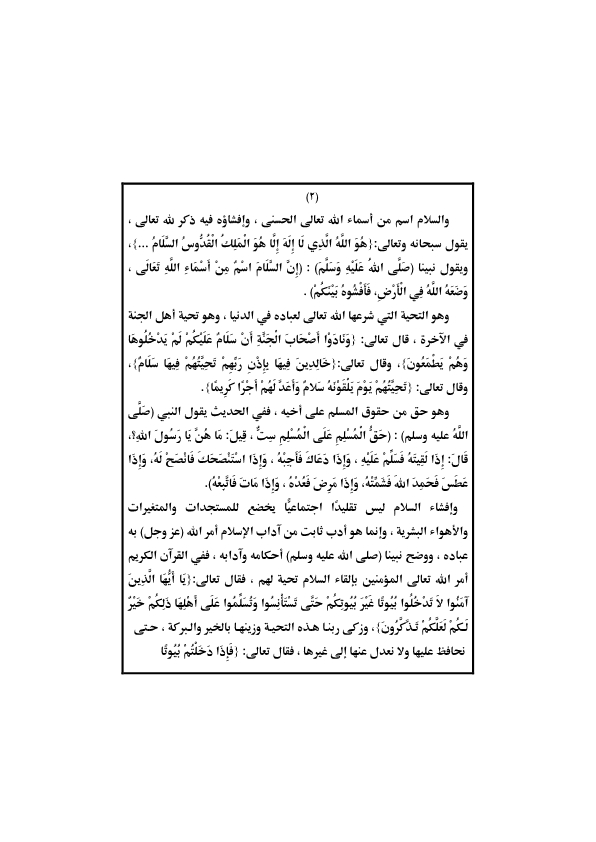 (٢)
والسلام اسم من أسماء الله تعالى الحسنى ، وإفشاؤه فيه ذكر لله تعالى ،
يقول سبحانه وتعالى:{هُوَ اللَّهُ الَّذِي لَا إِلَهَ إِلَّا هُوَ الْمَلِكُ الْقُدُّوسُ السَّلَامُ ...}،
ويقول نبينا (صَلَّى اللهُ عَلَيْهِ وَسَلَّمَ) : (إِنَّ السَّلَامَ اسْمٌ مِنْ أَسْمَاءِ اللَّهِ تَعَالَى ،
وَضَعَهُ اللَّهُ فِي الْأَرْضِ، فَأَفْشُوهُ بَيْنَكُمْ) .
وهو التحية التي شرعها الله تعالى لعباده في الدنيا ، وهو تحية أهل الجنة
في الآخرة ، قال تعالى: {وَنَادَوْا أَصْحَابَ الْجَنَّةِ أَنْ سَلَامٌ عَلَيْكُمْ لَمْ يَدْخُلُوهَا
وَهُمْ يَطْمَعُونَ}، وقال تعالى:{خَالِدِينَ فِيهَا بِإِذْنِ رَبِّهِمْ تَحِيَّتُهُمْ فِيهَا سَلَامٌ}،
وقال تعالى: {تَحِيَّتُهُمْ يَوْمَ يَلْقَوْنَهُ سَلامٌ وَأَعَدَّ لَهُمْ أَجْرًا كَرِيمًا}.
وهو حق من حقوق المسلم على أخيه ، ففي الحديث يقول النبي (صَلَّى
اللَّهُ عليه وسلم) : (حَقُّ الْمُسْلِمِ عَلَى الْمُسْلِمِ سِتٌّ ، قِيلَ: مَا هُنَّ يَا رَسُولَ اللهِ؟،
قَالَ: إِذَا لَقِيتَهُ فَسَلِّمْ عَلَيْهِ ، وَإِذَا دَعَاكَ فَأَجِبْهُ ، وَإِذَا اسْتَنْصَحَكَ فَانْصَحْ لَهُ، وَإِذَا
عَطَسَ فَحَمِدَ اللهَ فَشَمِّتْهُ، وَإِذَا مَرِضَ فَعُدْهُ ، وَإِذَا مَاتَ فَاتَّبِعْهُ).
وإفشاء السلام ليس تقليدًا اجتماعيًّا يخضع للمستجدات والمتغيرات
والأهواء البشرية ، وإنما هو أدب ثابت من آداب الإسلام أمر الله (عز وجل) به
عباده ، ووضح نبينا (صلى الله عليه وسلم) أحكامه وآدابه ، ففي القرآن الكريم
أمر الله تعالى المؤمنين بإلقاء السلام تحية لهم ، فقال تعالى:{يَا أَيُّهَا الَّذِينَ
آمَنُوا لاَ تَدْخُلُوا بُيُوتًا غَيْرَ بُيُوتِكُمْ حَتَّى تَسْتَأْنِسُوا وَتُسَلِّمُوا عَلَى أَهْلِهَا ذَلِكُمْ خَيْرٌ
لَكُمْ لَعَلَّكُمْ تَذَكَّرُونَ}، وزكى ربنا هذه التحية وزينها بالخير والبركة ، حتى
نحافظ عليها ولا نعدل عنها إلى غيرها ، فقال تعالى: {فَإِذَا دَخَلْتُمْ بُيُوتًا